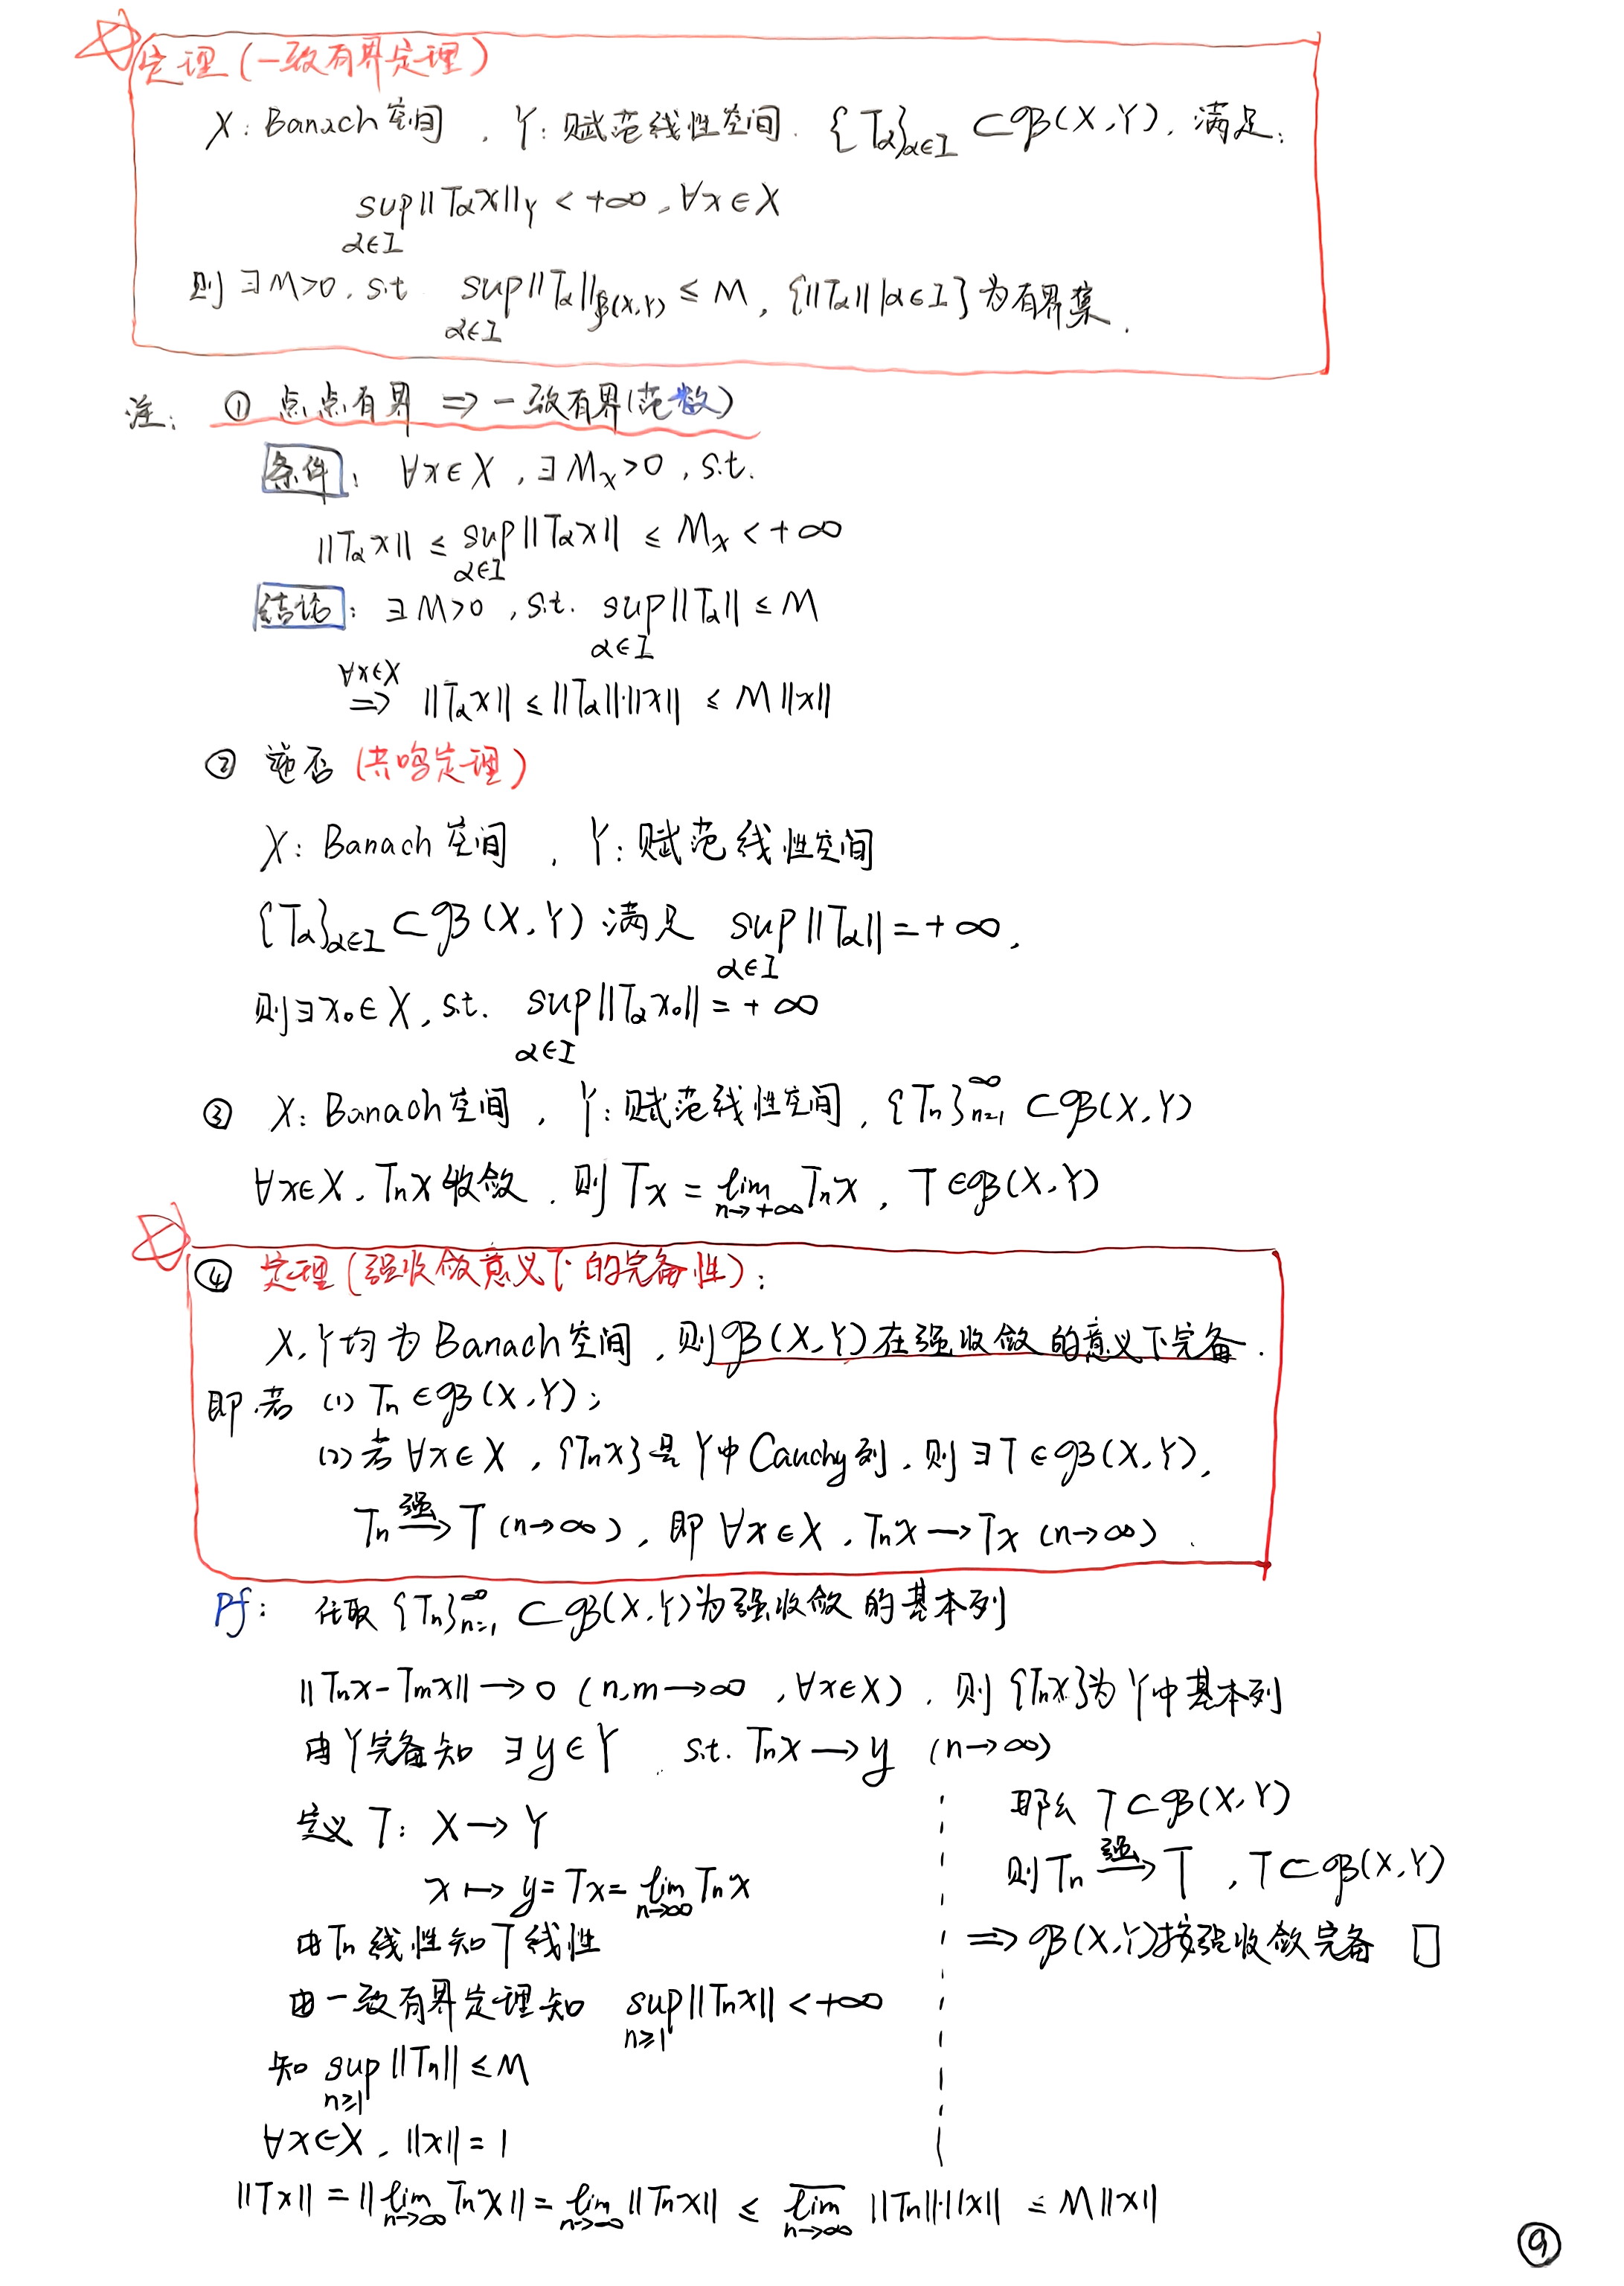 定理(一致有界定理)
X: Banach空间, Y: 赋范线性空间. {T_α}_{α∈I} ⊂ 𝓑(X,Y), 满足:
sup_{α∈I} ||T_α x||_Y < +∞, ∀x∈X
则 ∃M>0, s.t. sup_{α∈I} ||T_α||_{𝓑(X,Y)} ≤ M, {||T_α|| | α∈I} 为有界集.
注: ① 点点有界 ⇒ 一致有界(范数)
条件: ∀x∈X, ∃M_x>0, s.t.
||T_α x|| ≤ sup_{α∈I} ||T_α x|| ≤ M_x < +∞
结论: ∃M>0, s.t. sup_{α∈I} ||T_α|| ≤ M
∀x∈X ⇒ ||T_α x|| ≤ ||T_α||·||x|| ≤ M||x||
② 逆否 (共鸣定理)
X: Banach空间, Y: 赋范线性空间
{T_α}_{α∈I} ⊂ 𝓑(X,Y) 满足 sup_{α∈I} ||T_α|| = +∞,
则∃x₀∈X, s.t. sup_{α∈I} ||T_α x₀|| = +∞
③ X: Banach空间, Y: 赋范线性空间, {T_n}_{n=1}^∞ ⊂ 𝓑(X,Y)
∀x∈X, T_n x 收敛, 则 Tx = lim_{n→+∞} T_n x, T∈𝓑(X,Y)
④ 定理(强收敛意义下的完备性):
X,Y均为Banach空间, 则𝓑(X,Y)在强收敛的意义下完备.
即.若 (1) T_n∈𝓑(X,Y);
(2) 若∀x∈X, {T_n x}是Y中Cauchy列, 则∃T∈𝓑(X,Y),
T_n —强→ T (n→∞), 即 ∀x∈X, T_n x → Tx (n→∞).
Pf: 任取 {T_n}_{n=1}^∞ ⊂ 𝓑(X,Y)为强收敛的基本列
||T_n x - T_m x|| → 0 (n,m→∞, ∀x∈X), 则{T_n x}为Y中基本列
由Y完备知 ∃y∈Y s.t. T_n x → y (n→∞)
定义 T: X → Y
x ↦ y = Tx = lim_{n→∞} T_n x
由T_n线性知T线性
由一致有界定理知 sup_{n≥1} ||T_n x|| < +∞
知 sup_{n≥1} ||T_n|| ≤ M
∀x∈X, ||x|| = 1
||Tx|| = ||lim_{n→∞} T_n x|| = lim_{n→∞} ||T_n x|| ≤ \overline{lim}_{n→∞} ||T_n||·||x|| ≤ M||x||
那么 T⊂𝓑(X,Y)
则 T_n —强→ T, T⊂𝓑(X,Y)
⇒ 𝓑(X,Y)按强收敛完备 □
⑨